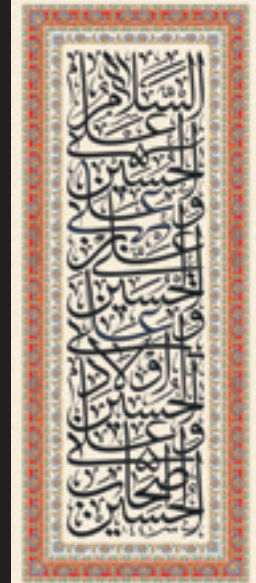 السلام
على
الحسين
وعلى
علي بن
الحسين
وعلى
أولاد
الحسين
وعلى
أصحاب
الحسين